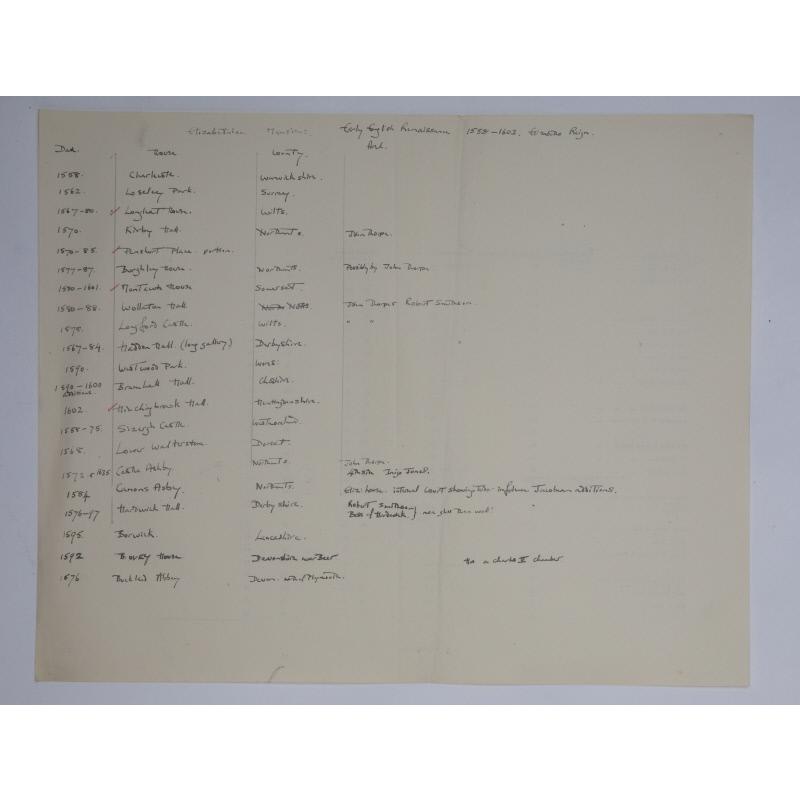 Elizabethan Mansions Early English Renaissance 1558-1603.
Date. House County. Arch.
1558. Charlecote. Warwickshire.
1562. Loseley Park. Surrey.
1567-80. ✓ Longleat House. Wilts.
1570. Kirby Hall. Northants. John Thorpe.
1570-85. ✓ Penshurst Place. portion.
1577-87. Burghley House. Northants. Possibly by John Thorpe
1580-1601. ✓ Montacute House Somerset.
1580-88. Wollaton Hall Notts. John Thorpe & Robert Smithson.
1575. Longford Castle. Wilts. " "
1567-84. Haddon Hall. (long gallery) Derbyshire.
1590. Westwood Park. Worc.
1590-1600 Bramhall Hall. Cheshire.
additions
1602. ✓ Hinchingbrook Hall. Huntingdonshire.
1558-75. Sizergh Castle. Westmorland.
1568. Lower Walterston Dorset.
1572 & 1635 Castle Ashby. Northants. John Thorpe.
Inigo Jones.
1584 Canons Ashby. Northants. Eliz: house. internal court showing Jacobean additions.
1576-97 Hardwick Hall. Derbyshire. Robert Smithson
Bess of Hardwick } more glass than wall.
1595. Borwick. Lancashire.
1592 Bovey House Devonshire near Beer Has a Charles II chamber
1576 Buckland Abbey Devon. Plymouth.